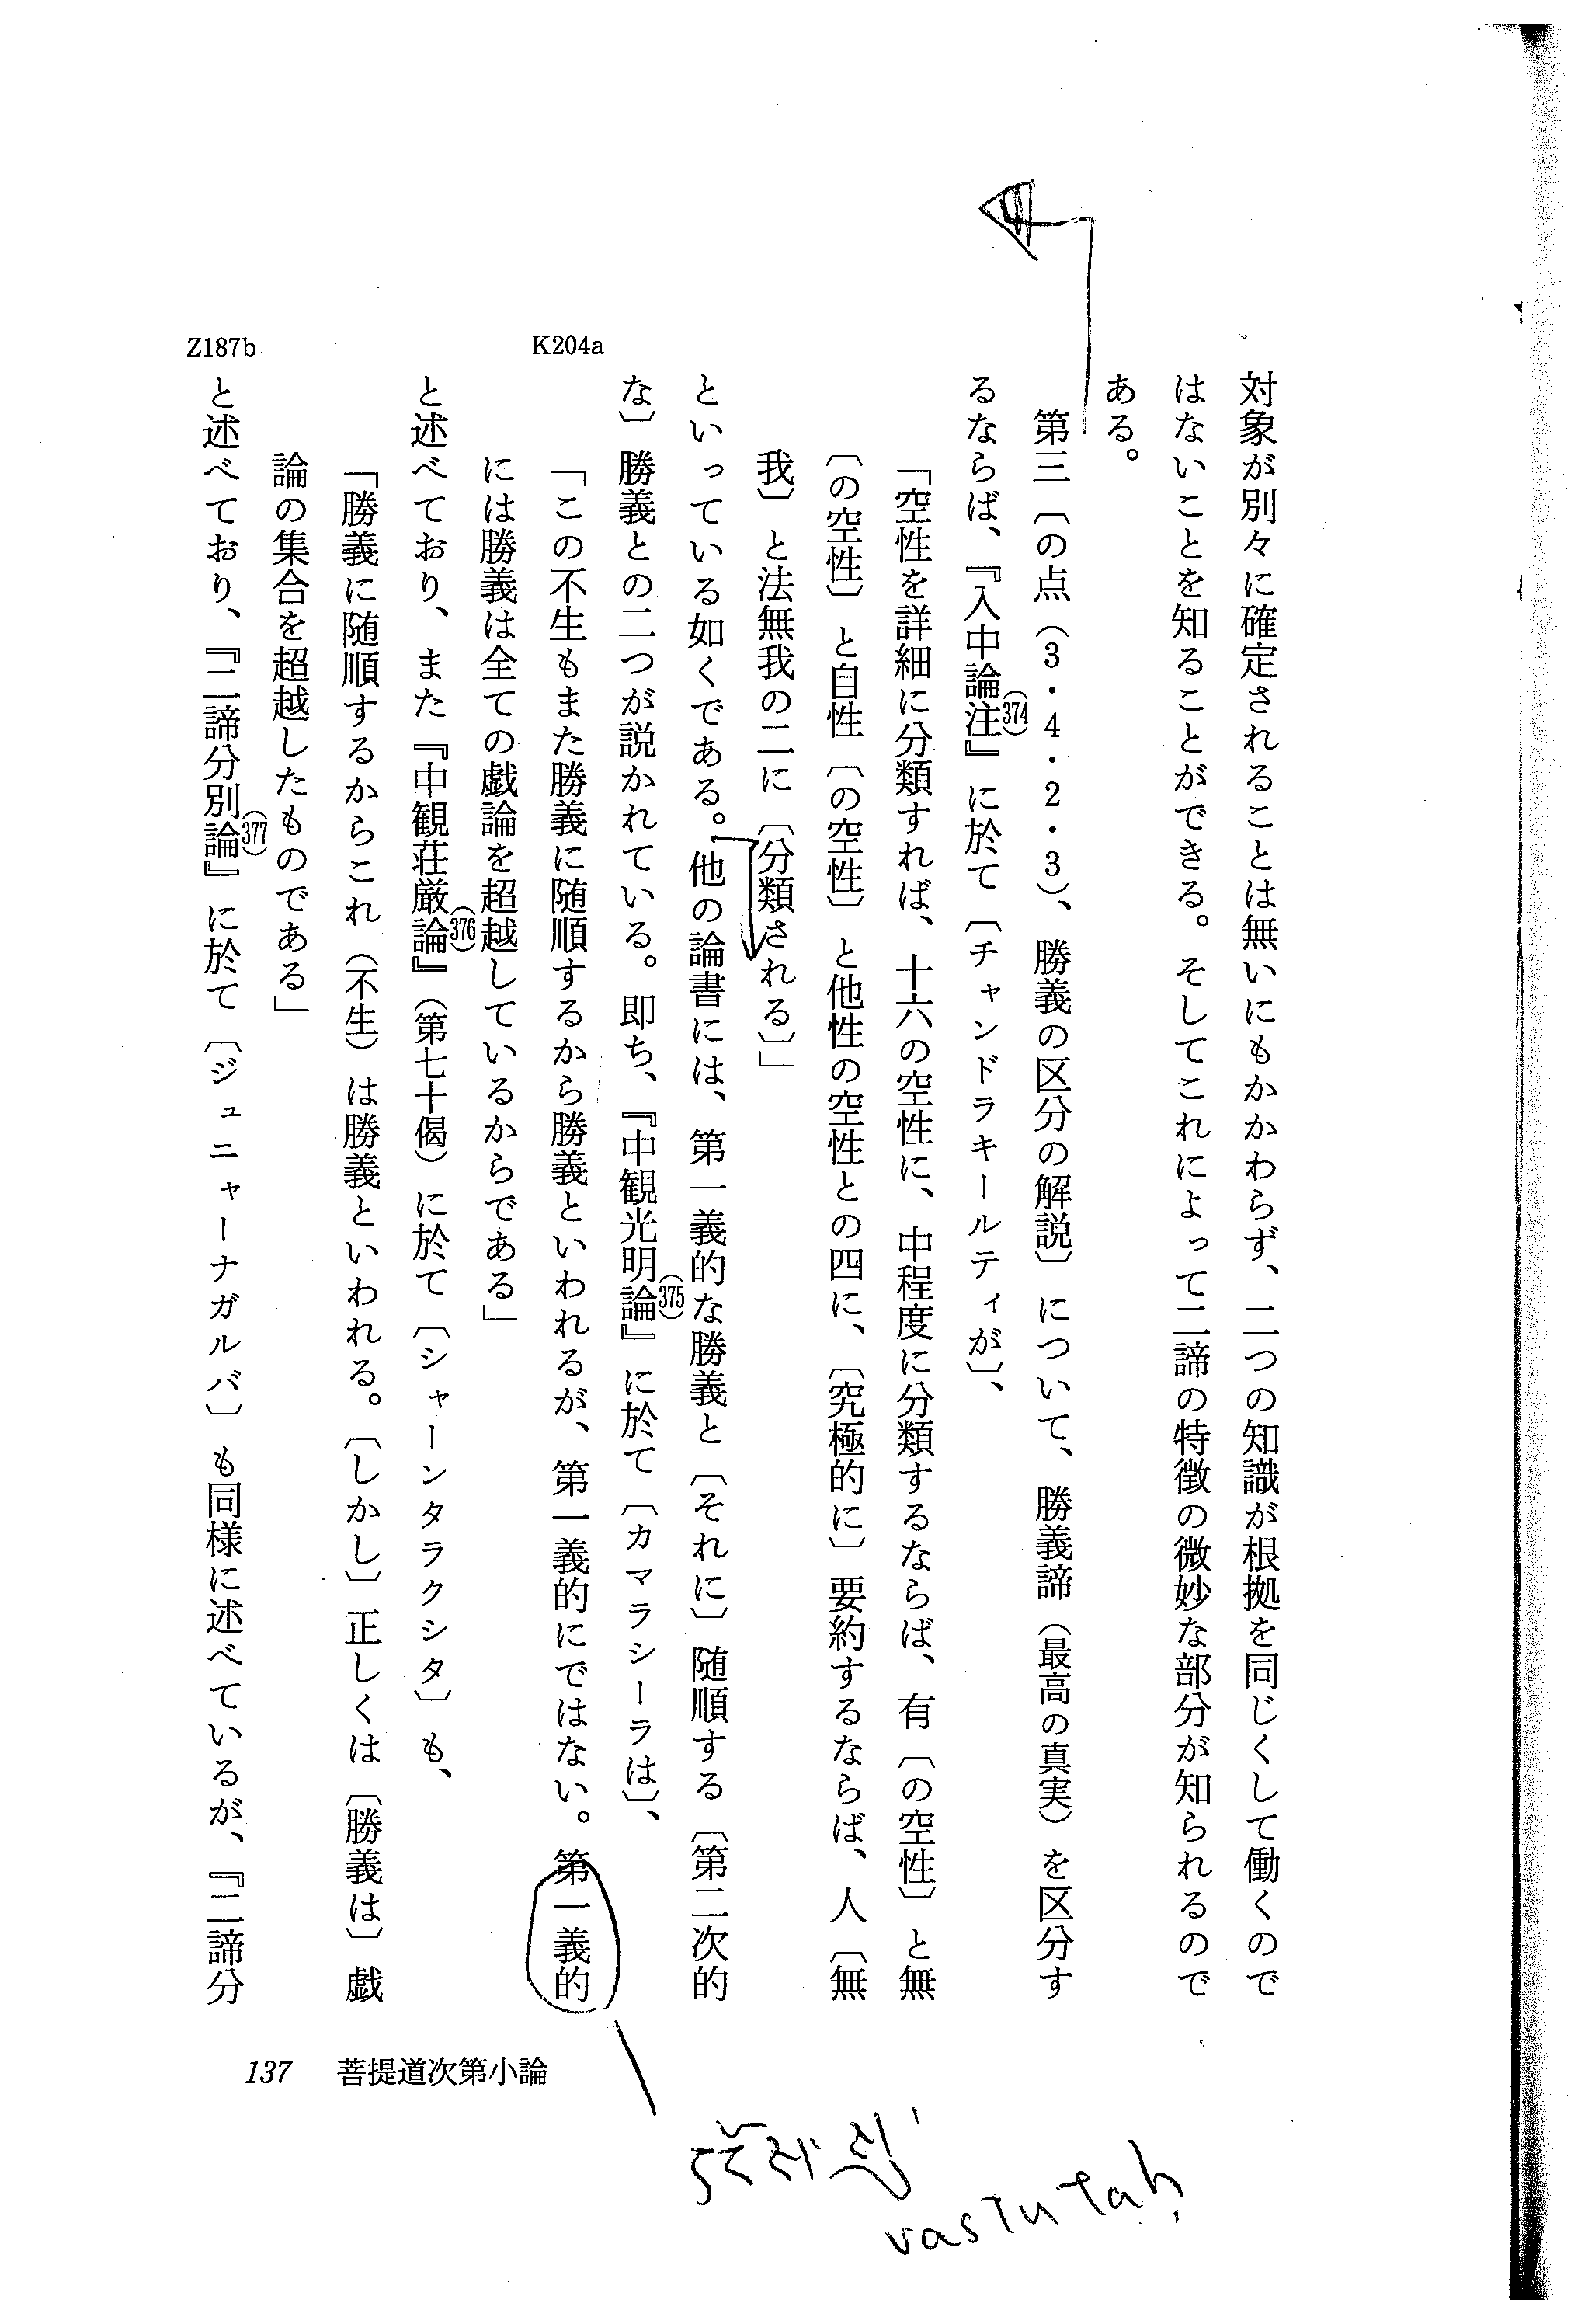 対象が別々に確定されることは無いにもかかわらず、二つの知識が根拠を同じくして働くので
はないことを知ることができる。そしてこれによって二諦の特徴の微妙な部分が知られるので
ある。
第三〔の点（3・4・2・3）、勝義の区分の解説〕について、勝義諦（最高の真実）を区分す
るならば、『入中論注(374)』に於て〔チャンドラキールティが〕、
「空性を詳細に分類すれば、十六の空性に、中程度に分類するならば、有〔の空性〕と無
〔の空性〕と自性〔の空性〕と他性の空性との四に、〔究極的に〕要約するならば、人〔無
我〕と法無我の二に〔分類される〕」
といっている如くである。他の論書には、第一義的な勝義と〔それに〕随順する〔第二次的
な〕勝義との二つが説かれている。即ち、『中観光明論(375)』に於て〔カマラシーラは〕、
K204a
「この不生もまた勝義に随順するから勝義といわれるが、第一義的にではない。第一義的
には勝義は全ての戯論を超越しているからである」
と述べており、また『中観荘厳論(376)』（第七十偈）に於て〔シャーンタラクシタ〕も、
「勝義に随順するからこれ（不生）は勝義といわれる。〔しかし〕正しくは〔勝義は〕戯
論の集合を超越したものである」
Z187b
と述べており、『二諦分別論(377)』に於て〔ジュニャーナガルバ〕も同様に述べているが、『二諦分
137 菩提道次第小論
vastutaḥ